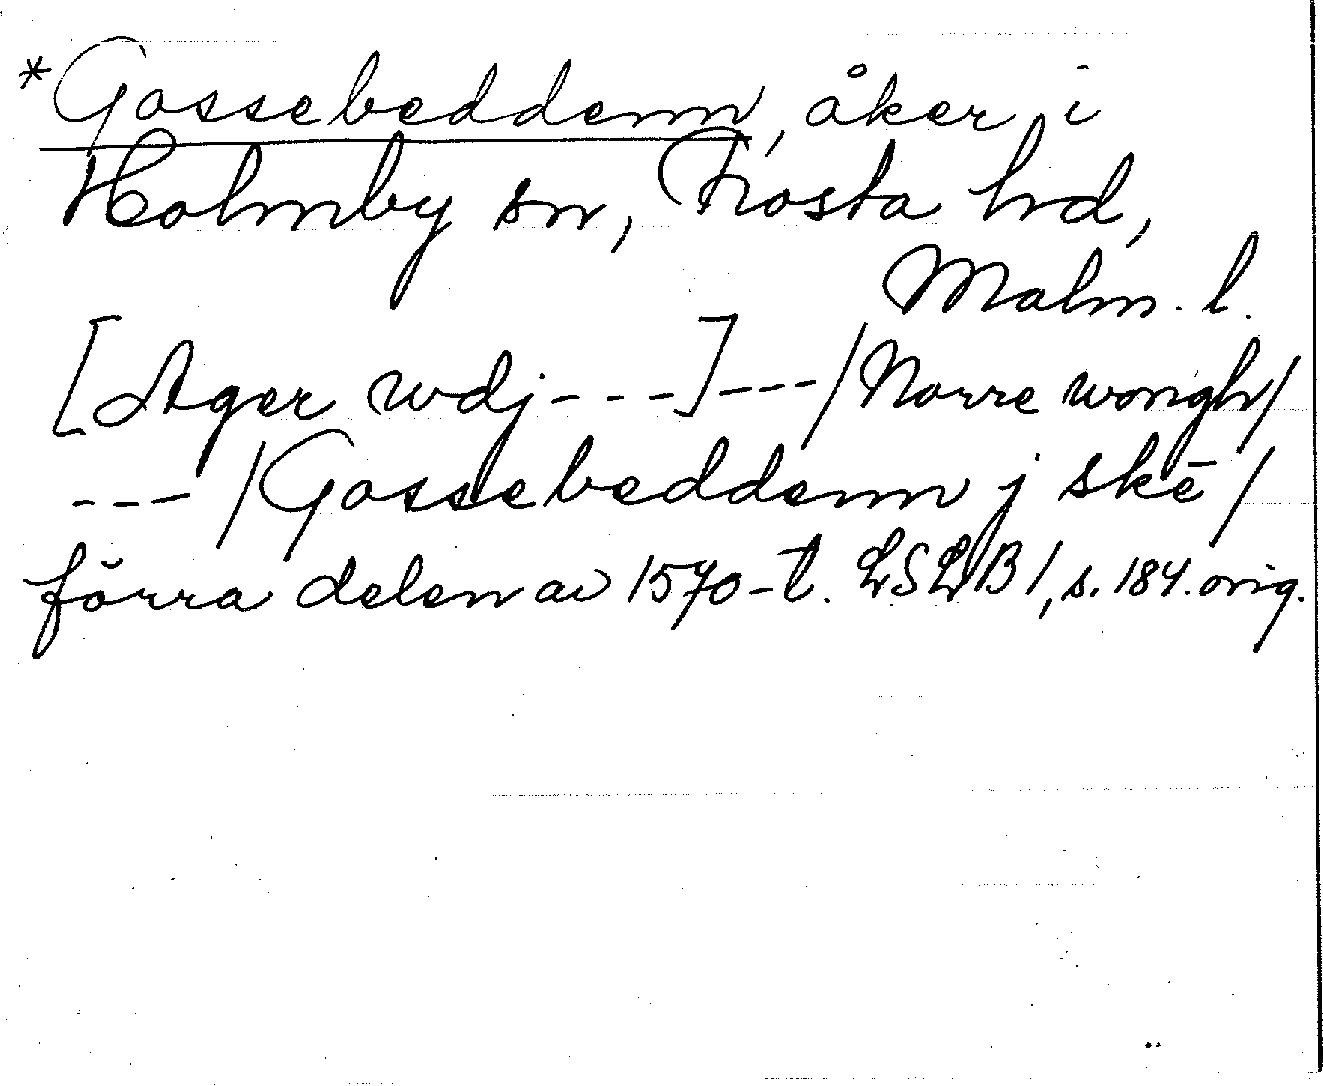 *Gossebeddenn, åker i
Holmby sn, Frosta hd,
Malm. l.
[Ager wdj---]---/Norre wongh/
---/Gossebeddenn j skē/
förra delen av 1570-t. LSLB 1, s. 184. orig.